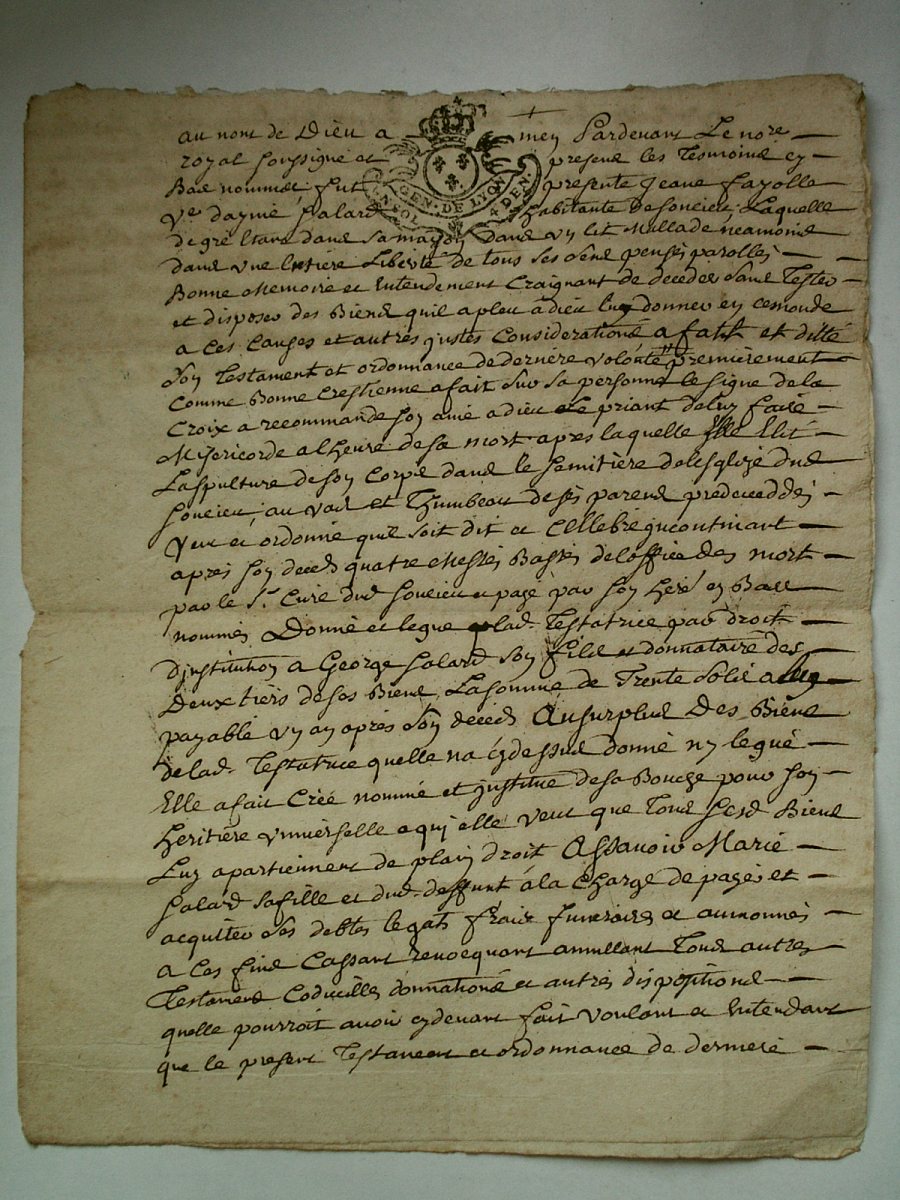 au nom de Dieu a — men Pardevant Le no.re —
royal soussigne et presend les Tesmoind cy —
Bad nommés fut presente Jeane fayolle
V.e daymé Salard habitante de soucieu Laquelle
de gré Etant dand sa mayson dand un lit Mallade neamoind
dand une Entiere Liberté de tous ses send pensés parolles —
Bonne Memoire et Entendement Craignant de deceder sand Tester —
et disposer des Biend quil a pleu a dieu luy donner en ce monde
a ces Causes et autres justes Considerationd a fait et ditté
son Testament et ordonnance de derniere volonté premierement
Comme Bonne Crestienne a fait sur sa personne le signe de la
Croix a recommandé son ame a dieu Le priant de luy faire —
Misericorde a lheure de sa mort apres laquelle Elle Elit —
La spulture de son Corpd dand le semitiere de lesglize dud
soucieu au vad et Thumbeau de ses parend predeceddés —
Veut et ordonne quil soit dit et Cellebré incontinant —
apres son deced quatre Messes Basses de loffice des mort —
par le S.r Curé dud soucieu et payé par son heré en Bad
nommés Donne et legue lad Testatrice par droit —
dinstitution a George Salard son fild et donnataire des
Deux tiers de ses Biend La somme de Trente sold a luy —
payable un an apres son deced Au surplud Des Biend
de lad Testatrice quelle na cy dessud donné ny legué —
Elle a fait Créé nommé et justitue de sa Bouche pour son —
heritiere universelle a qui elle veut que Toud sesd Biend
Luy apartiennent de plain droit Assavoir Marie —
Salard sa fille et dud deffunt a la Charge de payer et —
acquiter ses debtes legats fraid funeraired et aumonnes —
a Ces find Cassant revocquant annullant Toud autres
Testamend Codicilles donnationd et autres dispositiond —
quelle pourroit avoir cy devant fait voulant et Entendant
que le present Testament et ordonnance de derniere —
GEN. DE LYON
UN SOL 4 DEN.